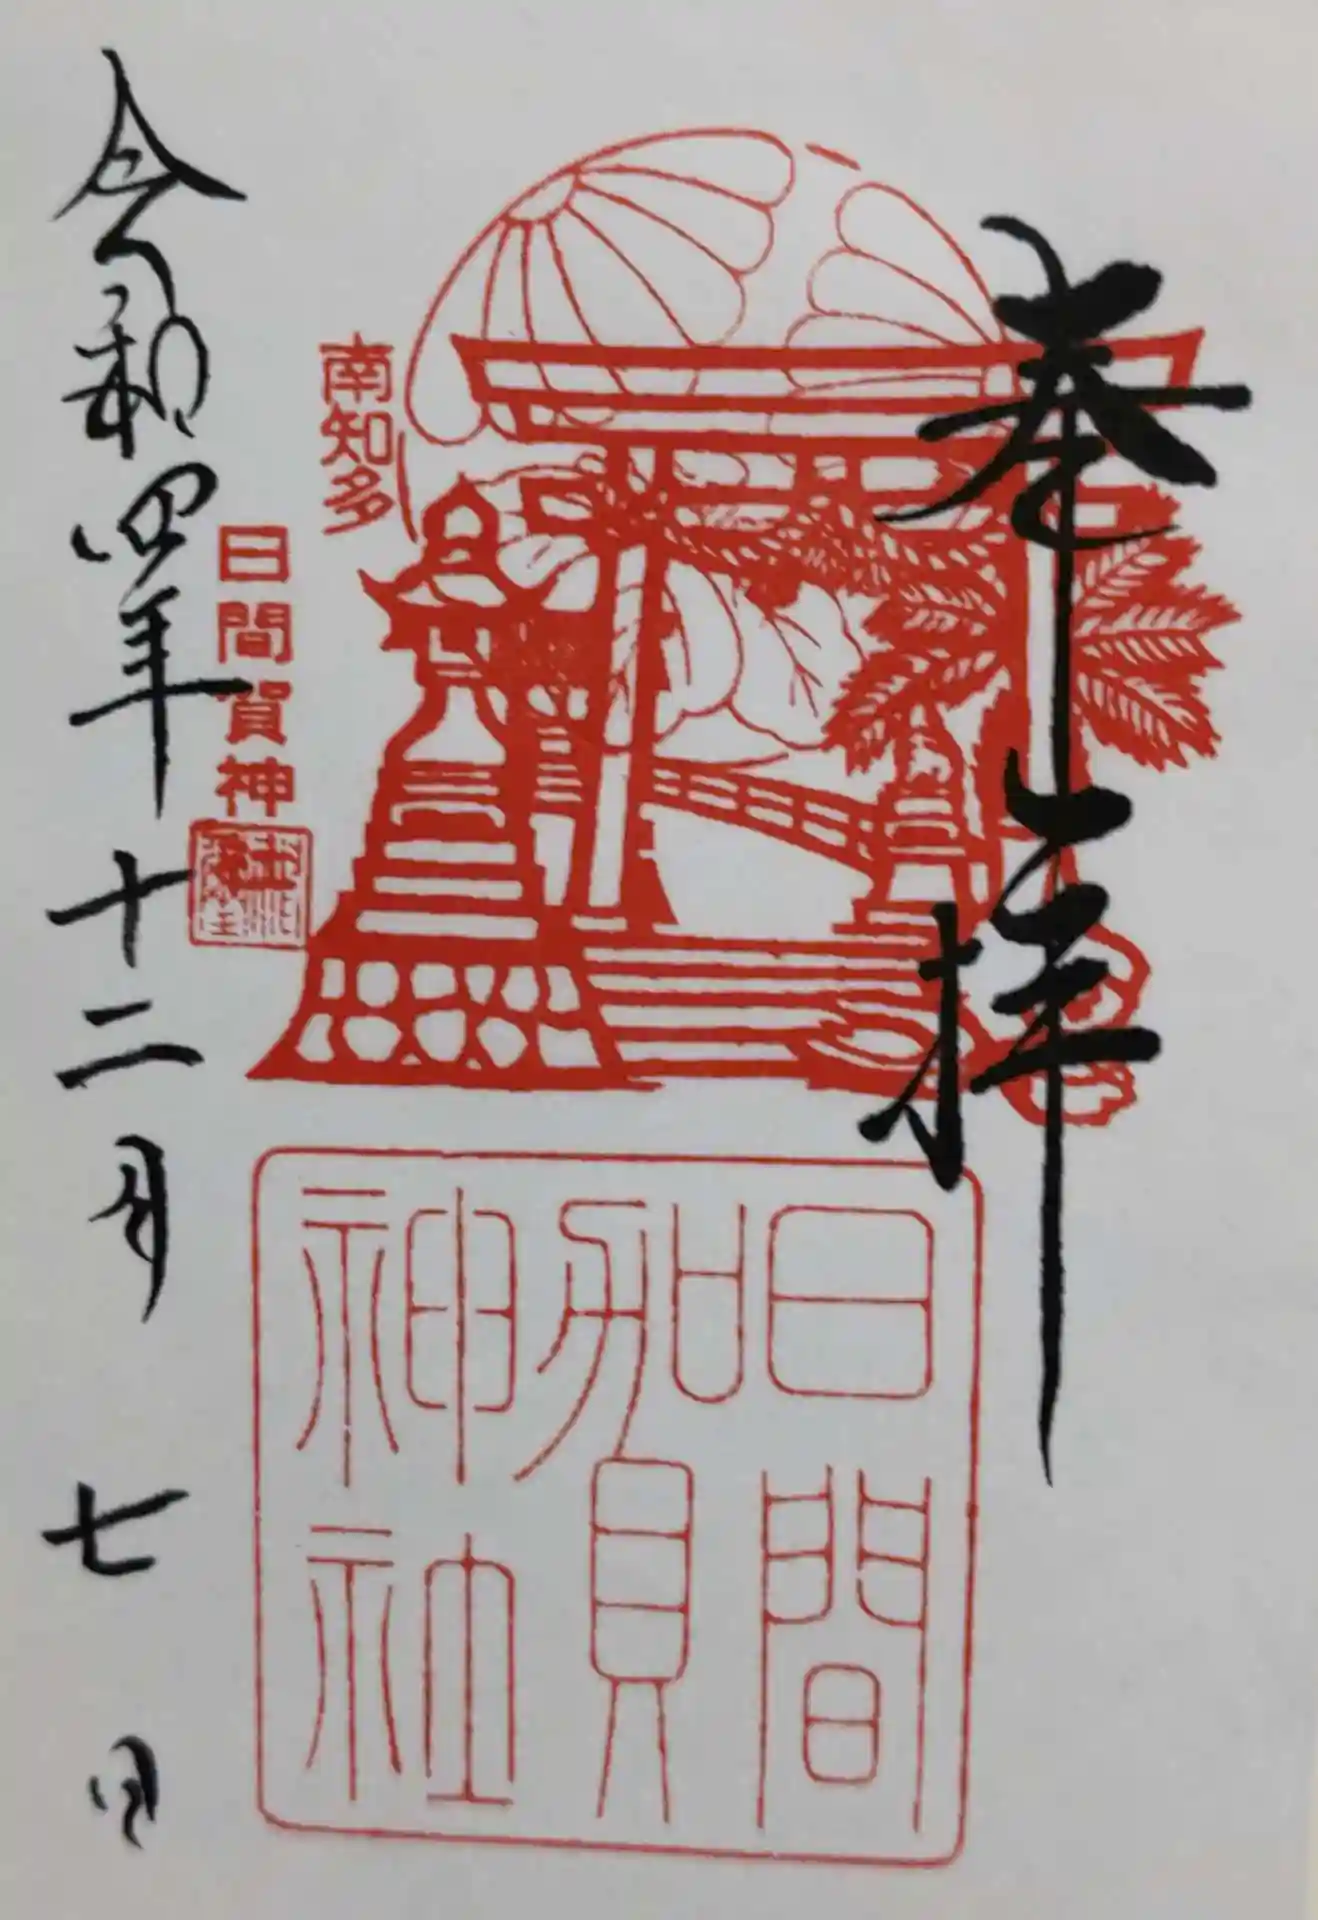 奉拝
南知多
日間賀神社
日間賀神社
令和四年十二月七日